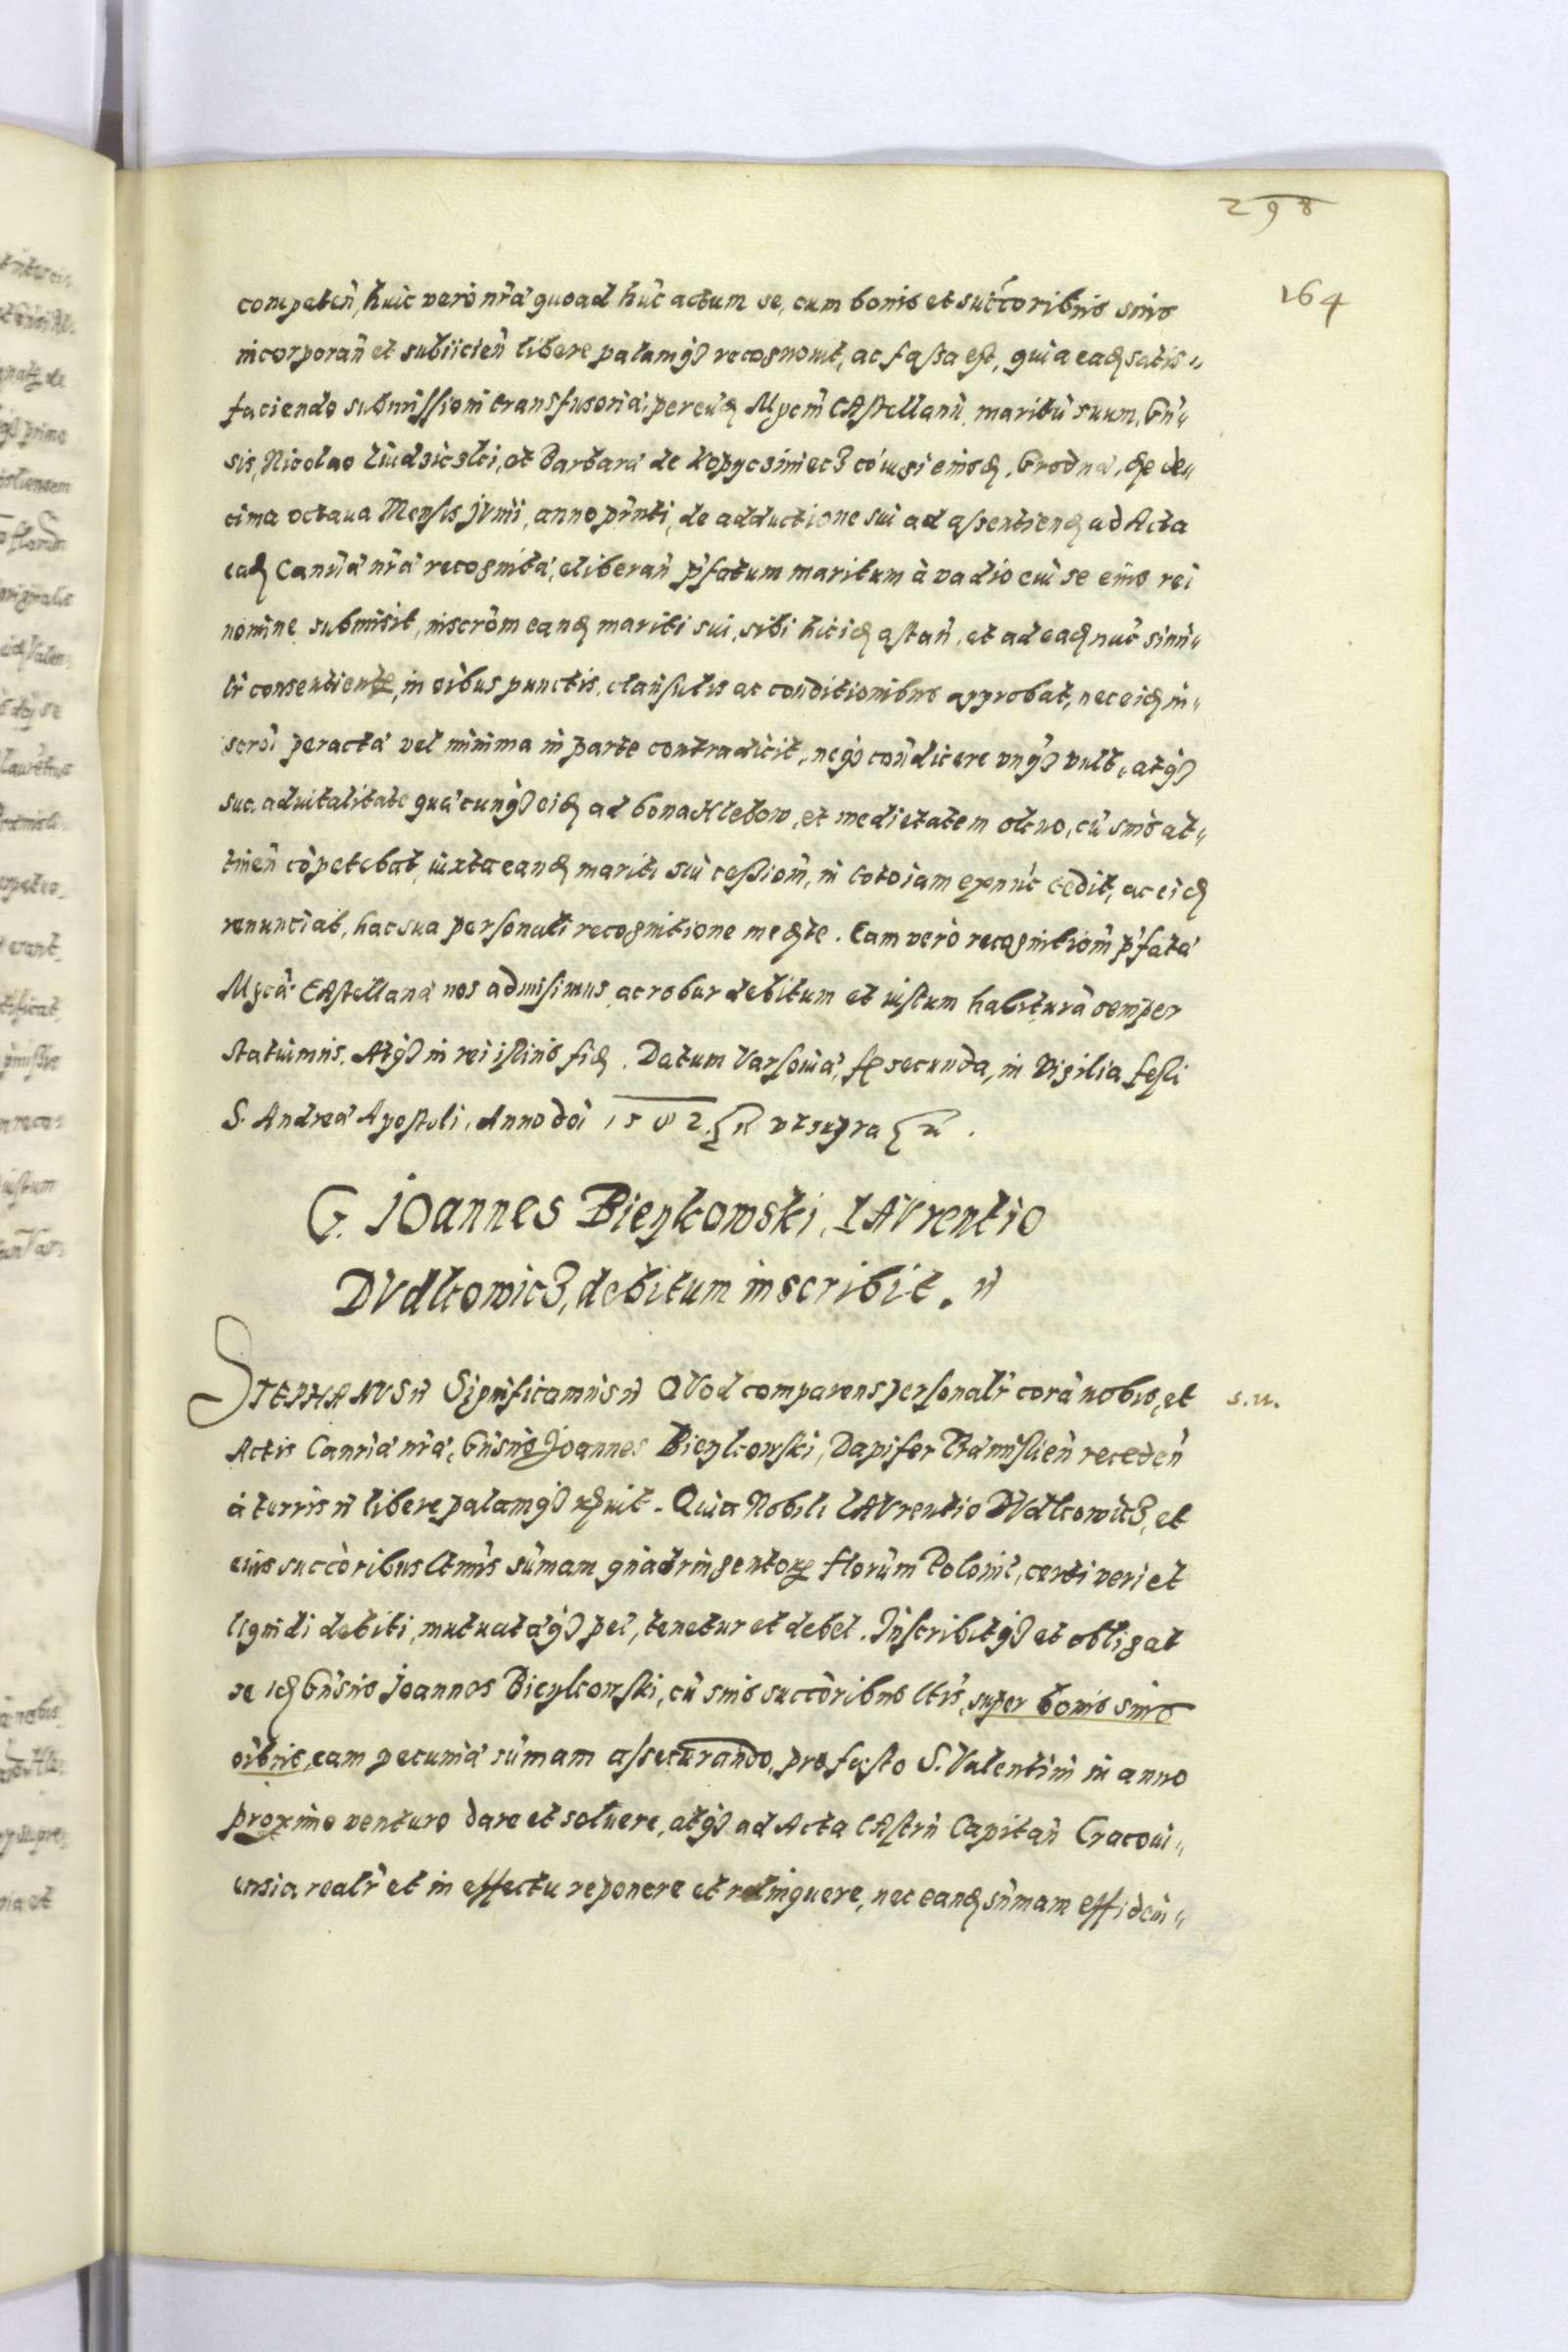 298
164
competen, huic vero nrä quoad hűc actum se, cum bonis et succoribus suis
incorporan et subiicien libere palamqз recognouit, ac fassa est, quia eadꝫ satis„
faciendo submissioni transfusoriä, per eűdꝫ Mgcm CAstellanű maritű suum, Gn„
sis, Nicolao et Barbarä de Kopycziniecz coiugi eiusdꝫ, Grodnä, de„
cima octaua Mensis jvnii, anno pn̄ti, de adductione sui ad assentiendꝫ ad Acta
eadꝫ Canriä nrä recognitä, eliberan p̄fatum maritum à vadio cui se eius rei
nomine submisit, inscrom eandꝫ mariti sui, sibi hic idꝫ astan, et ad eadꝫ nuc simi„
lr consentiente, in oibus punctis, clausulis ac conditionibus approbat, nec eidꝫ in„
scroi peractä vel minima in parte contradicit, neqз condicere vnqз vult, atqз
suo aduitalitate quäcunqз eidꝫ ad bona Hlebow, et medietatem cű suis at„
tinen copetebat, iuxta eandꝫ mariti sui cessiom, in toto iam exnűc cedit, ac eidꝫ
renunciat, hac sua personali recognitione Eam verò recognitiom p̄fatä
Mgcä CAstellanä nos admisimus ac robur debitum et iustum habiturä semper
statuimus. Atqз in rei istius fidꝫ. Datum Varsouiä, secunda, in Vigilia festi
S. Andreä Apostoli, Anno doi 1582. vt supra
G. jOannes Bieykowski, LAVrentio
DVdkowicз, debitum inscribit. n
STEPHANVS n Significamus n QVod comparens personalr corä nobis, et
s. n.
Actis Canriä nrä, Gnsus Joannes Bieykowski, Dapifer receden
à terris n libere palamqз Quia Nobili LAVrentio DVdkowicз, et
eius succoribus ltmis sumam quadringentoꝝ florum Polonic, certi veri et
liquidi debiti, mutuatäqз pec, tenetur et debet. Inscribitqз et obligat
se idꝫ Gnsus joannes Bieykowski, cű suis succoribus ltis, super bonis suis
oibus, eam pecuniä sumam assecurando, pro festo S. Valentini in anno
proxime venturo dare et soluere, atqз ad Acta CAstrn Capitan Cracoui„
ensia realr et in effectu reponere et relinquere, nec eandꝫ sumam